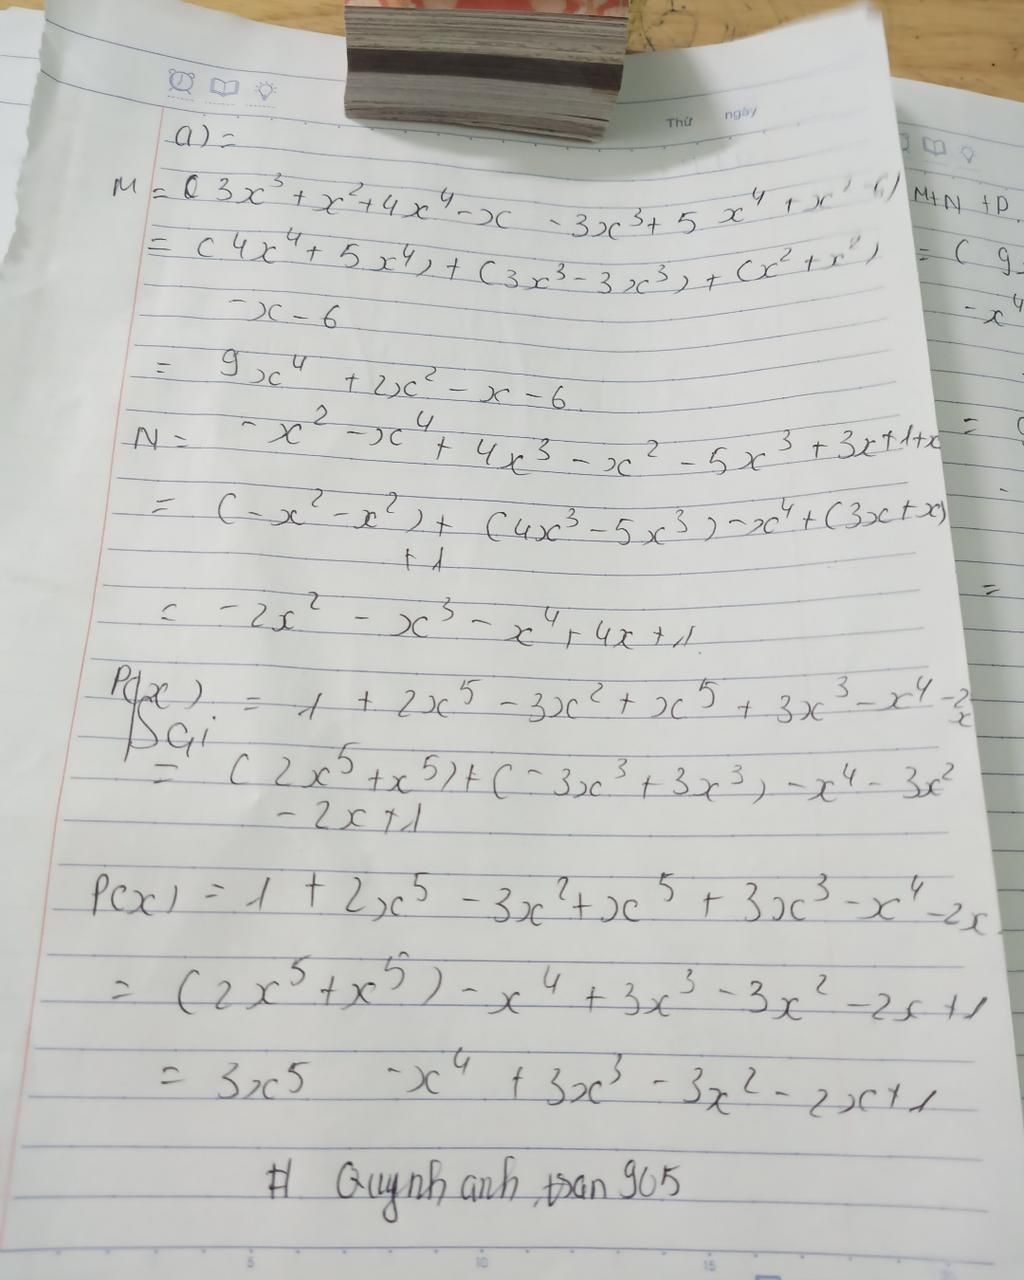 Thứ ngày
a) =
M = ( 3x³ + x² + 4x⁴ - x - 3x³ + 5 x⁴ + x² - 6)
= ( 4x⁴ + 5x⁴) + (3x³ - 3x³) + (x² + x²)
- x - 6
= 9x⁴ + 2x² - x - 6
N = - x² - x⁴ + 4x³ - x² - 5x³ + 3x + 1 + x
= (-x² - x²) + (4x³ - 5x³) - x⁴ + (3x + x)
+ 1
= - 2x² - x³ - x⁴ + 4x + 1
P(x) = 1 + 2x⁵ - 3x² + x⁵ + 3x³ - x⁴ - 2x
Sai
= ( 2x⁵ + x⁵) + (- 3x³ + 3x³) - x⁴ - 3x²
- 2x + 1
P(x) = 1 + 2x⁵ - 3x² + x⁵ + 3x³ - x⁴ - 2x
= (2x⁵ + x⁵) - x⁴ + 3x³ - 3x² - 2x + 1
= 3x⁵ - x⁴ + 3x³ - 3x² - 2x + 1
# Quynh anh tran 965
5 10 15
M+N+P
= ( 9
- x⁴
= (
-
=